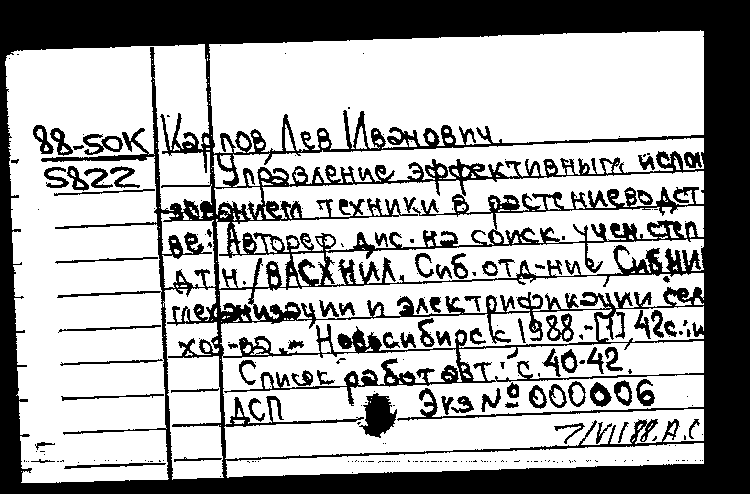 88-50К Карпов, Лев Иванович.
5822 Управление эффективным испол
зованием техники в растениеводст-
ве: Автореф. дис. на соиск. учен. степ
д.т.н. /ВАСХНИЛ. Сиб. отд-ние, СибНИИ
механизации и электрификации сел
хоз-ва. - Новосибирск 1988. - [1], 42с.: и
Список работ авт.: с. 40-42.
ДСП Экз № 000006
7/VII 88. А.С